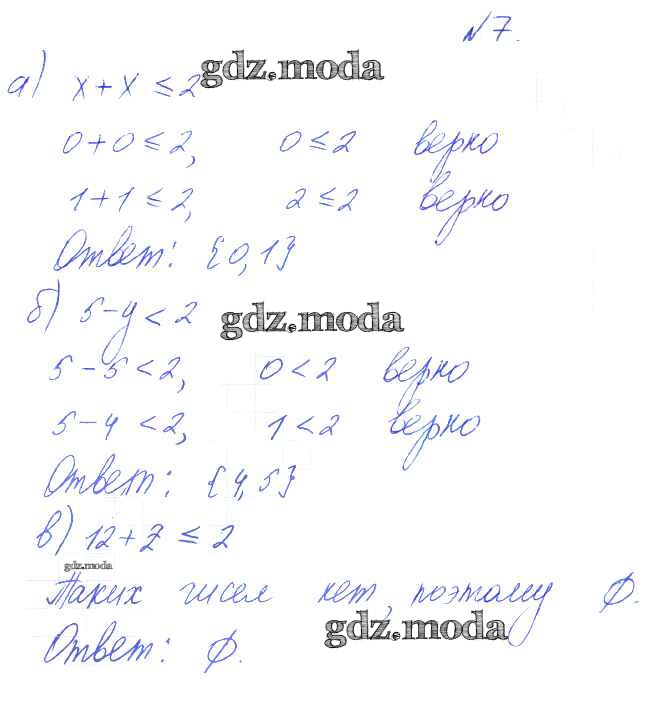 №7.
а) x + x ≤ 2
0 + 0 ≤ 2, 0 ≤ 2 верно
1 + 1 ≤ 2, 2 ≤ 2 верно
Ответ: {0, 1}
б) 5 - y < 2
5 - 5 < 2, 0 < 2 верно
5 - 4 < 2, 1 < 2 верно
Ответ: {4, 5}
в) 12 + z ≤ 2
Таких чисел нет, поэтому ∅.
Ответ: ∅.
gdz.moda
gdz.moda
gdz.moda
gdz.moda